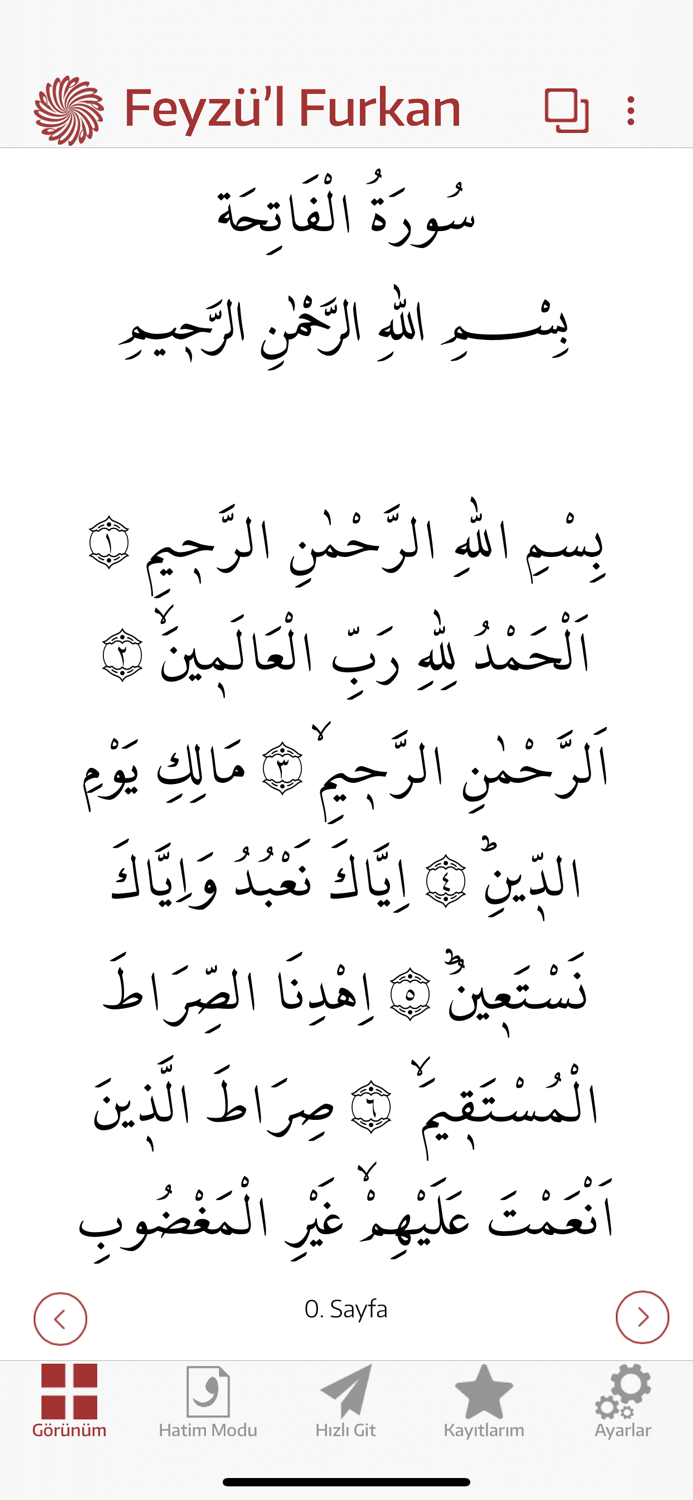 Feyzü'l Furkan
سُورَةُ الْفَاتِحَة
بِسْــــمِ اللّٰهِ الرَّحْمٰنِ الرَّح۪يمِ
بِسْمِ اللّٰهِ الرَّحْمٰنِ الرَّح۪يمِ ﴿١﴾
اَلْحَمْدُ لِلّٰهِ رَبِّ الْعَالَم۪ينَۙ ﴿٢﴾
اَلرَّحْمٰنِ الرَّح۪يمِۙ ﴿٣﴾ مَالِكِ يَوْمِ
الدّ۪ينِۜ ﴿٤﴾ اِيَّاكَ نَعْبُدُ وَاِيَّاكَ
نَسْتَع۪ينُۜ ﴿٥﴾ اِهْدِنَا الصِّرَاطَ
الْمُسْتَق۪يمَۙ ﴿٦﴾ صِرَاطَ الَّذ۪ينَ
اَنْعَمْتَ عَلَيْهِمْۙ غَيْرِ الْمَغْضُوبِ
0. Sayfa
Görünüm
Hatim Modu
Hızlı Git
Kayıtlarım
Ayarlar